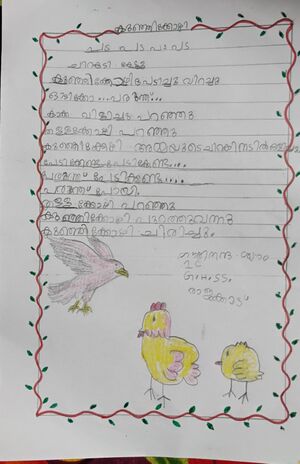 കുഞ്ഞിക്കോഴി
പട പട പട പട
ചിറകടി കേട്ടു
കുഞ്ഞിക്കോഴി പേടിച്ചു വിറച്ചു
ഓടിക്കോ...പരുന്ത്...
കാക്ക വിളിച്ചു പറഞ്ഞു
തള്ളക്കോഴി പറഞ്ഞു
കുഞ്ഞിക്കോഴി അമ്മയുടെ ചിറകിനടിൽ
പേടിക്കേണ്ട പേടിക്കേണ്ട....
പരുന്ത് പേടിക്കണ്ട....
പരുന്ത് പോയി
തള്ളക്കോഴി പറഞ്ഞു
കുഞ്ഞിക്കോഴി പുറത്തുവന്നു
കുഞ്ഞിക്കോഴി ചിരിച്ചു.
G.H.S.S.